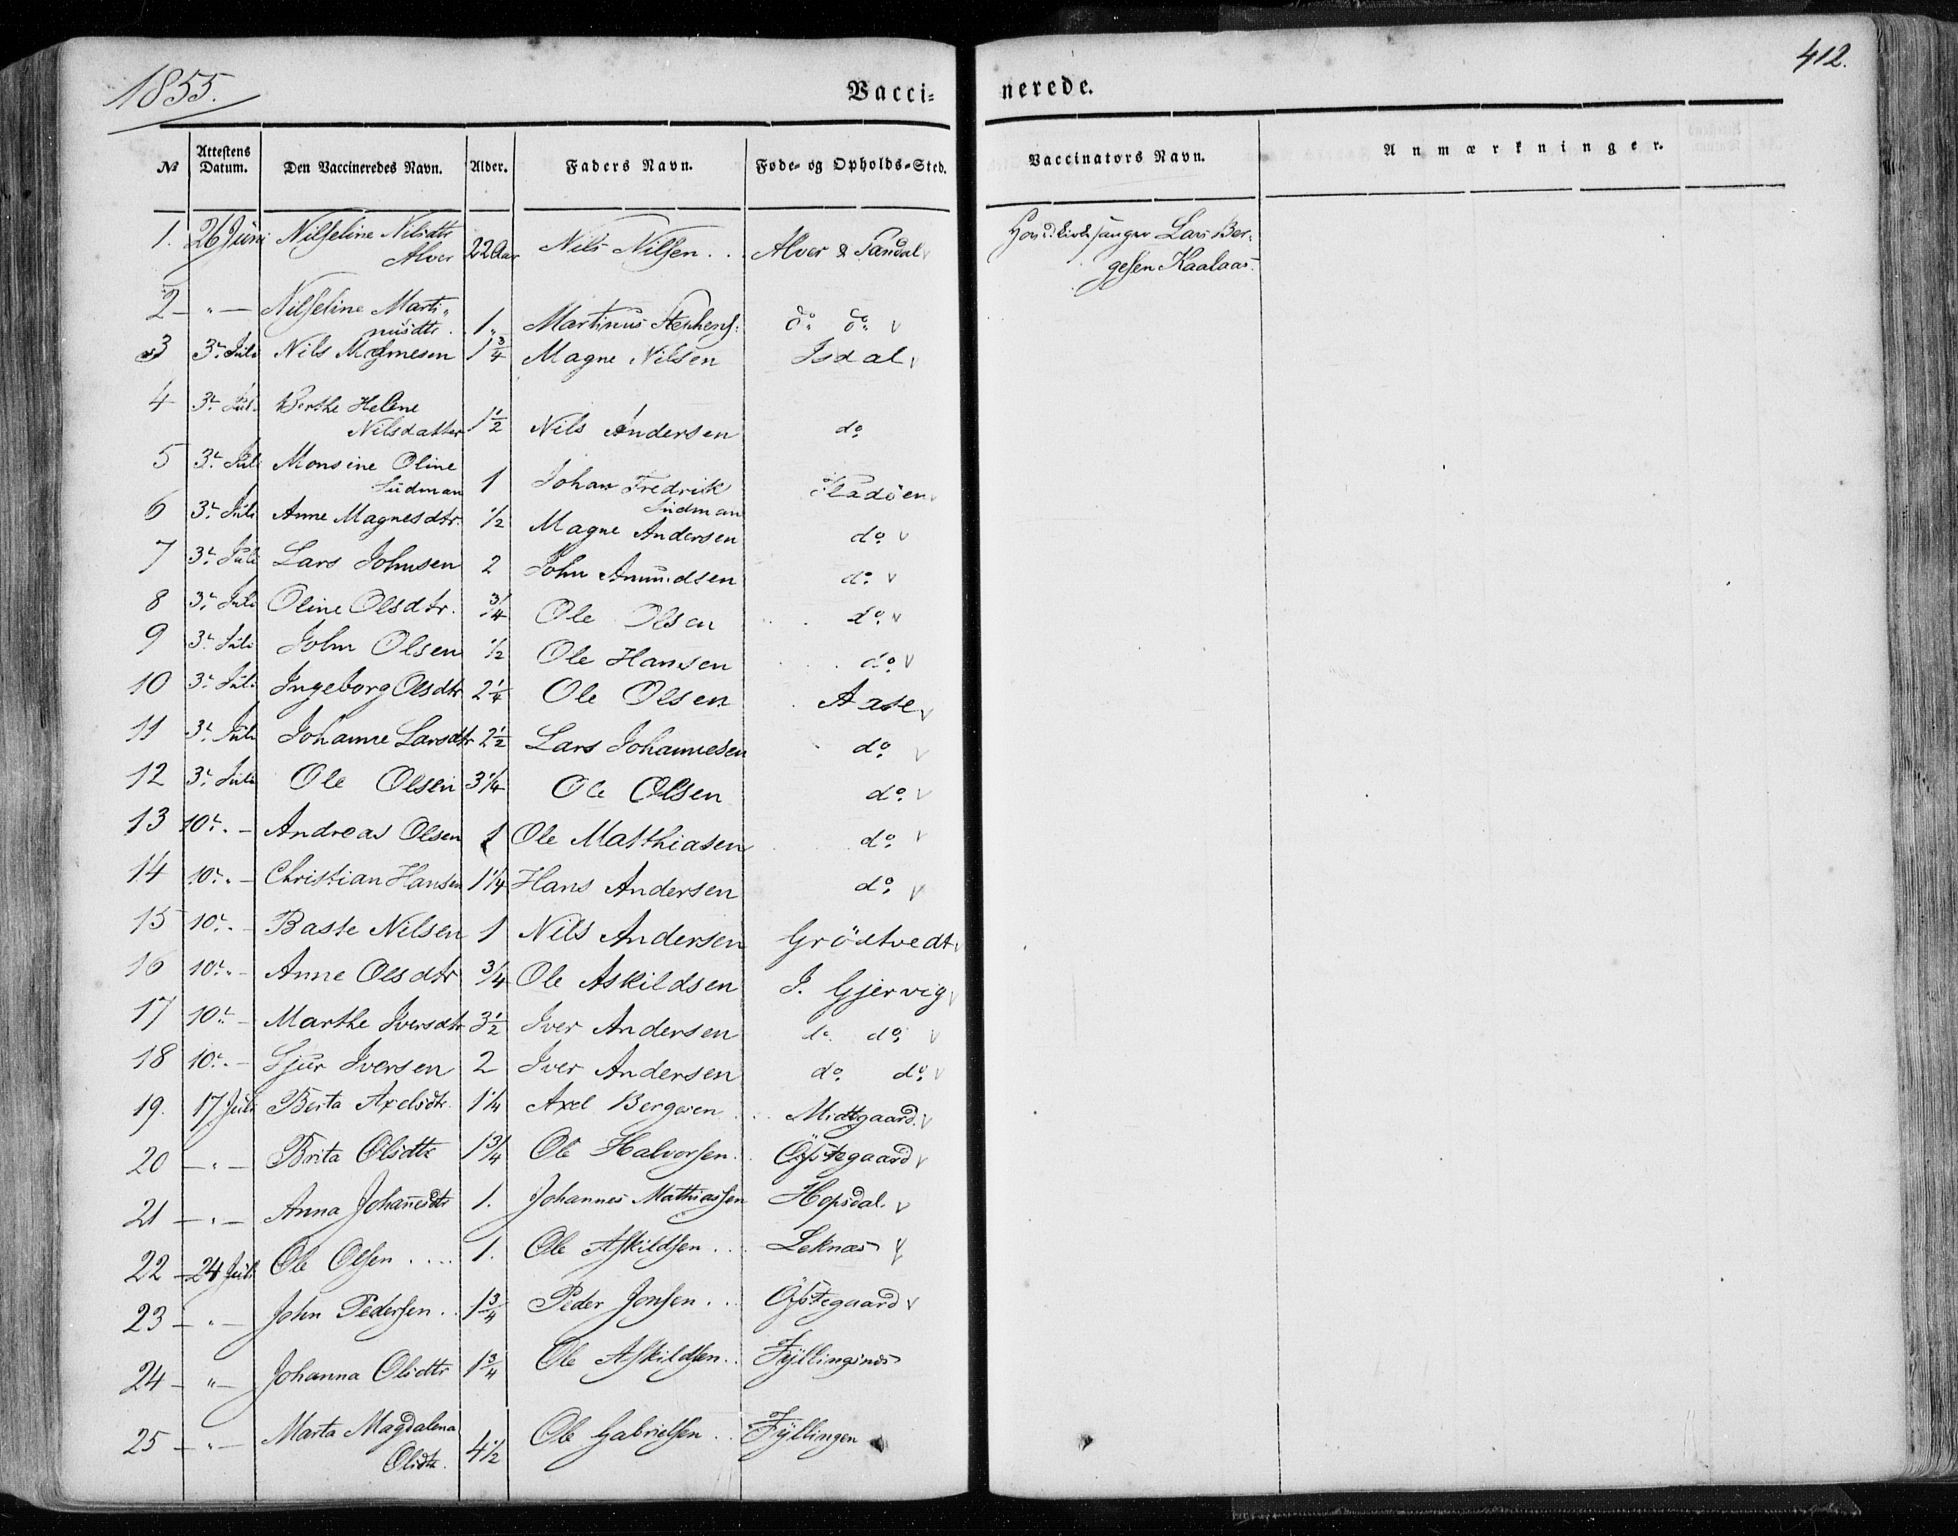 1855.
412.
Vacci-
nerede.
№ Attestens Datum. Den Vaccineredes Navn. Alder. Faders Navn. Føde- og Opholds-Sted. Vaccinators Navn. Anmærkninger.
1. 26 Juni Nilseline Nilsdtr Alver 22 Aar Nils Nilsen. Alver & Tandal Lars Ber-
gesen Kaalaas.
2 - " - Nilseline Marti-
nusdtr. 1. Martinus do. do.
3 3. Juli Nils 1 3/4 Magne Nilsen Isdal
4 3. Jul. Berthe Helene
Nilsdatter 1 1/2 Nils Andersen do
5 3. Juli Monsine Oline
Sudman 1 Johan Fredrik
Sudman Fladöen
6 3. Juli Anne Magnesdtr. 1/2 Magne Andersen do.
7 3. Juli Lars Johnsen 2 John Amundsen do.
8 3. Juli Oline Olsdtr. 3/4 Ole Olsen do.
9 3. Juli John Olsen 1/2 Ole Hansen do.
10 3. Juli Ingeborg Olsdtr 2 1/4 Ole Olsen Aase
11 3. Juli Johanne Larsdtr 2 1/2 Lars Johannesen do.
12 3. Juli Ole Olsen 3 1/4 Ole Olsen do.
13 10. - Andreas Olsen 1 Ole Matthiasen do.
14 10. - Christian Hansen 1 1/4 Hans Andersen do.
15 10. - Baste Nilsen 1 Nils Andersen Grödtvedt
16 10. - Anne Olsdtr 3/4 Ole Askildsen I. Gjervig
17 10. - Marthe Iversdtr 3 1/2 Iver Andersen do. do.
18 10. - Sjur Iversen 2 Iver Andersen do. do.
19. 17 Juli Berta Axelsdtr. 1 1/4 Axel Bergesen Midtgaard.
20 - " - Brita Olsdtr 1 3/4 Ole Halvorsen. Öfstegaard
21 - " - Anna Johanesdtr 1. Johannes Mathiassen Hopsdal.
22 - 24 Juli Ole Olsen .... 1. Ole Askildsen... Leknæs
23 - " - John Pedersen.. 1 3/4 Peder Jonsen... Öfstegaard
24 - " - Johanna Olsdtr 1 3/4 Ole Askildsen.. Fyllingsnes
25 - " - Marta Magdalena
Olsdtr. 4 1/2 Ole Gabrielsen.. Fyllingen